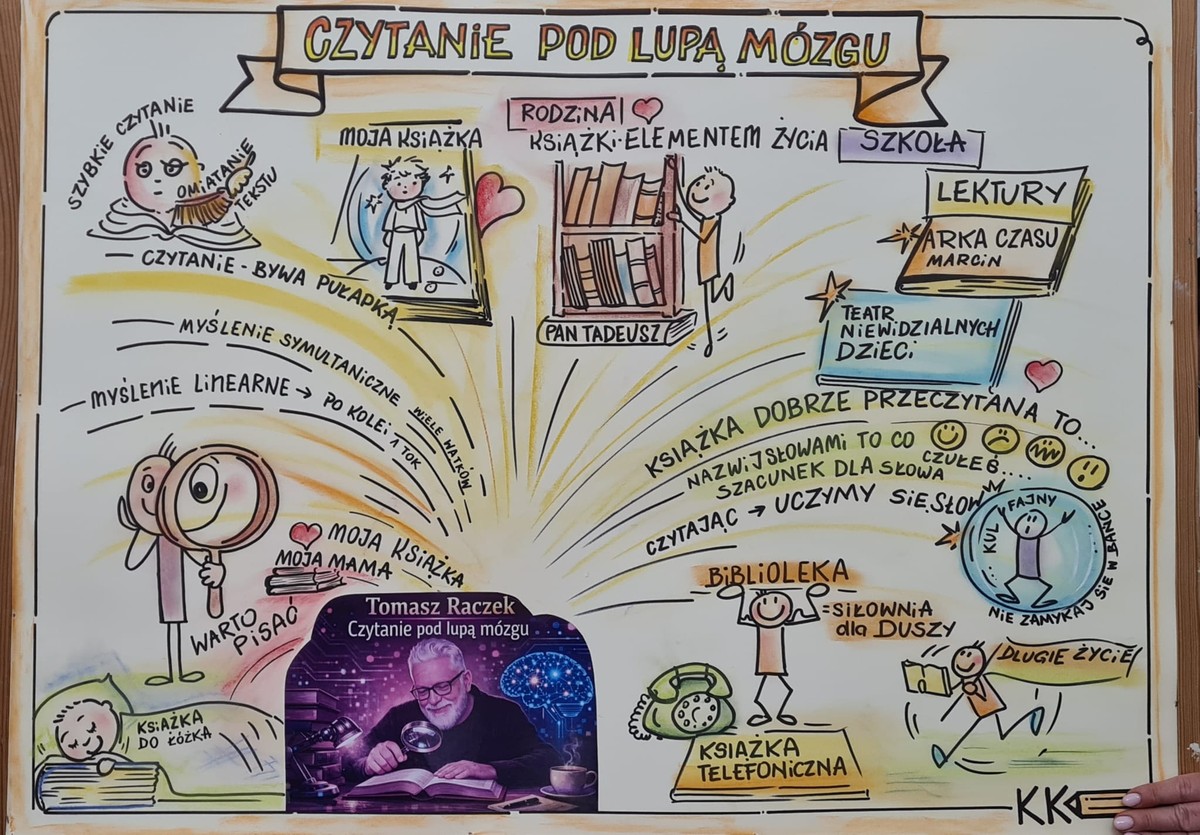 CZYTANIE POD LUPĄ MÓZGU
SZYBKIE CZYTANIE
OMIATANIE
TEKSTU
CZYTANIE - BYWA PUŁAPKĄ
MOJA KSIĄŻKA
RODZINA
KSIĄŻKI-ELEMENTEM ŻYCIA
PAN TADEUSZ
SZKOŁA
LEKTURY
ARKA CZASU
MARCIN
TEATR
NIEWIDZIALNYCH
DZIECI
MYŚLENIE SYMULTANICZNE
WIELE WĄTKÓW
MYŚLENIE LINEARNE → PO KOLEI 1 TOK
KSIĄŻKA DOBRZE PRZECZYTANA TO...
NAZWIJ SŁOWAMI TO CO
CZUŁEŚ...
SZACUNEK DLA SŁOWA
CZYTAJĄC → UCZYMY SIĘ SŁOW
KUL
FAJNY
NIE ZAMYKAJ SIĘ W BAŃCE
MOJA KSIĄŻKA
MOJA MAMA
WARTO
PISAĆ
KSIĄŻKA
DO ŁÓŻKA
Tomasz Raczek
Czytanie pod lupą mózgu
BIBLIOLEKA
=SIŁOWNIA
dla DUSZY
KSIĄŻKA
TELEFONICZNA
DŁUGIE ŻYCIE
KK